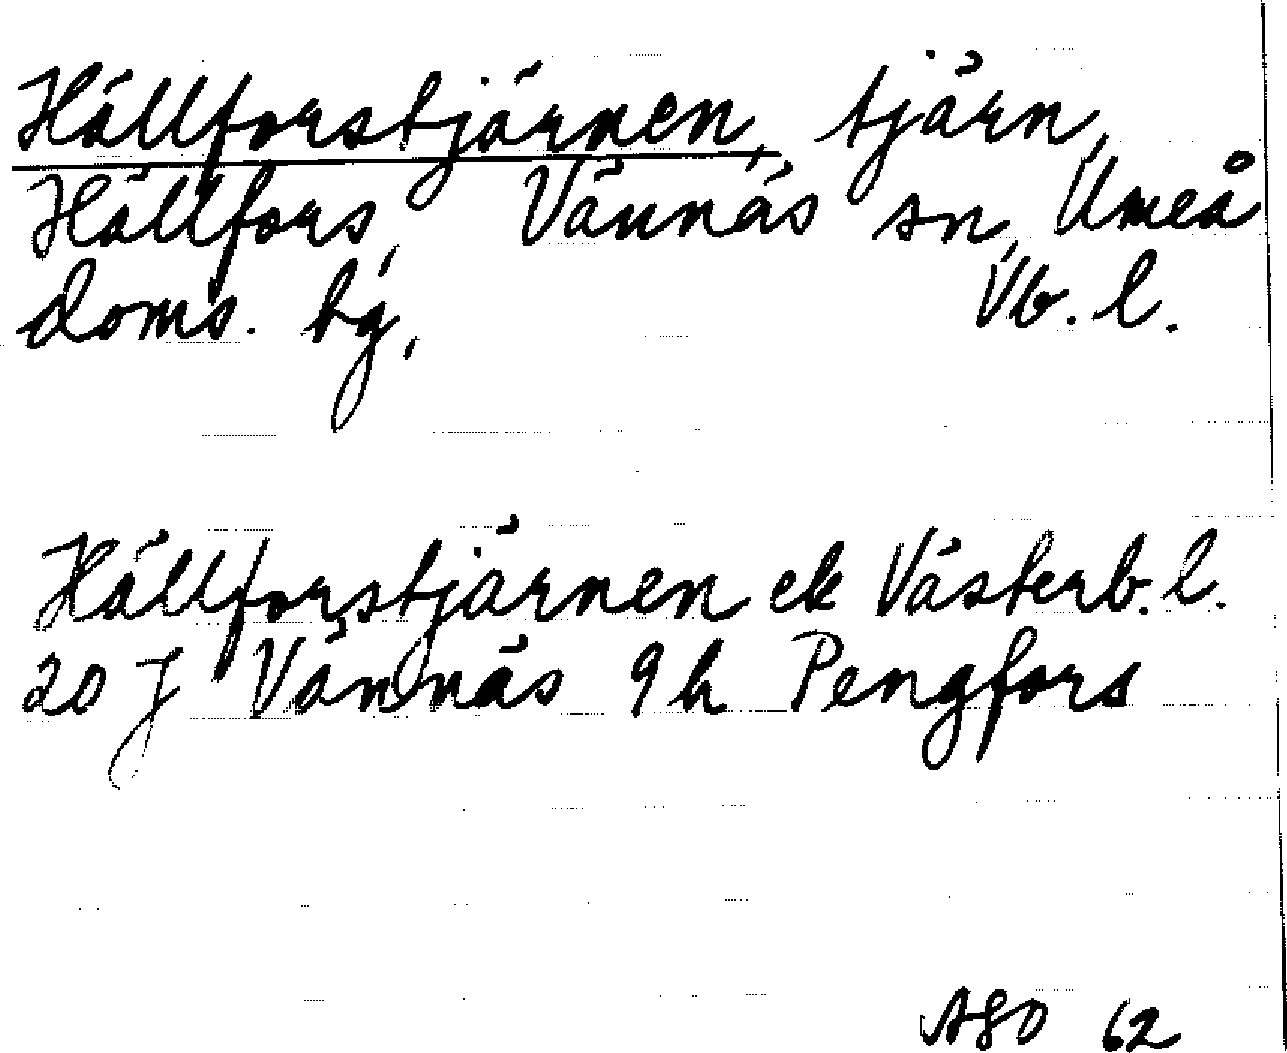 Hällforstjärnen, tjärn,
Hällfors, Vännäs sn, Umeå
doms. hg, Vb. l.
Hällforstjärnen ek Västerb. l.
20 J Vännäs 9 h Pengfors
ASO 62